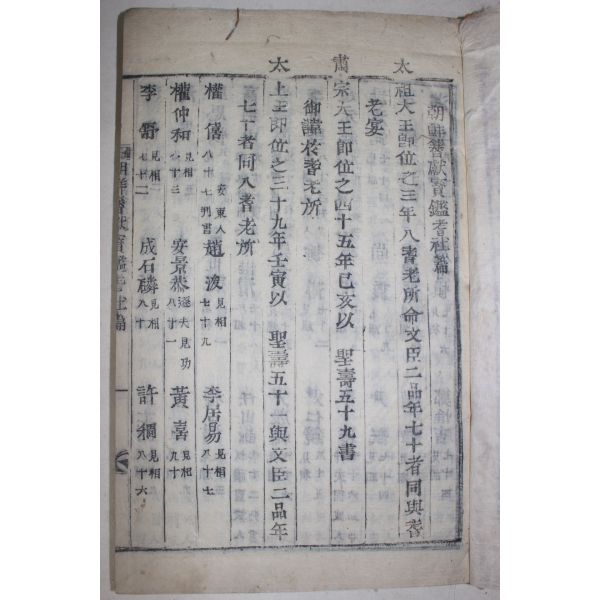 朝鮮耆獻寶鑑耆社篇
太祖大王卽位之三年入耆老所命文臣二品年七十者同與耆
老宴
肅宗大王卽位之四十五年己亥以 聖壽五十九書
御諱於耆老所
太上王卽位之三十九年壬寅以 聖壽五十一與文臣二品年
七十者同入耆老所
權僖 安東人判書八十七 趙浚 見相七十九 李居易 見相八十七
權仲和 見相八十三 安景恭 見功八十一 黃喜 見相九十
李舒 見相七十二 成石璘 見相八十 許稠 見相八十六